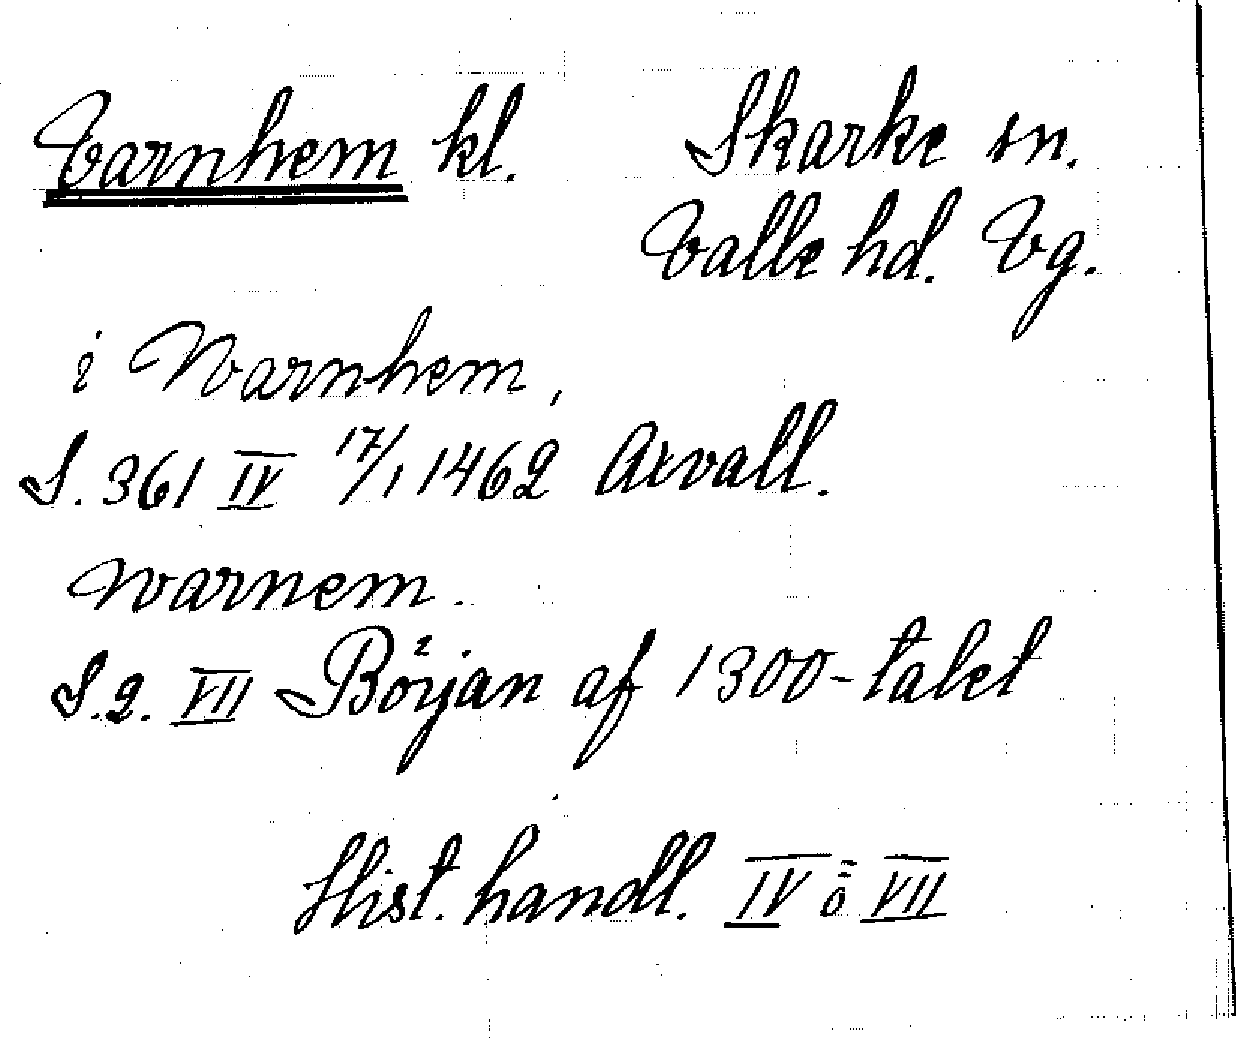 Varnhem kl. Skarke sn.
Valle hd. Vg.
i Warnhem,
S. 361 IV 17/1 1462 Axvall.
Warnem.
S. 2. VII Början af 1300-talet
Hist. handl. IV o VII